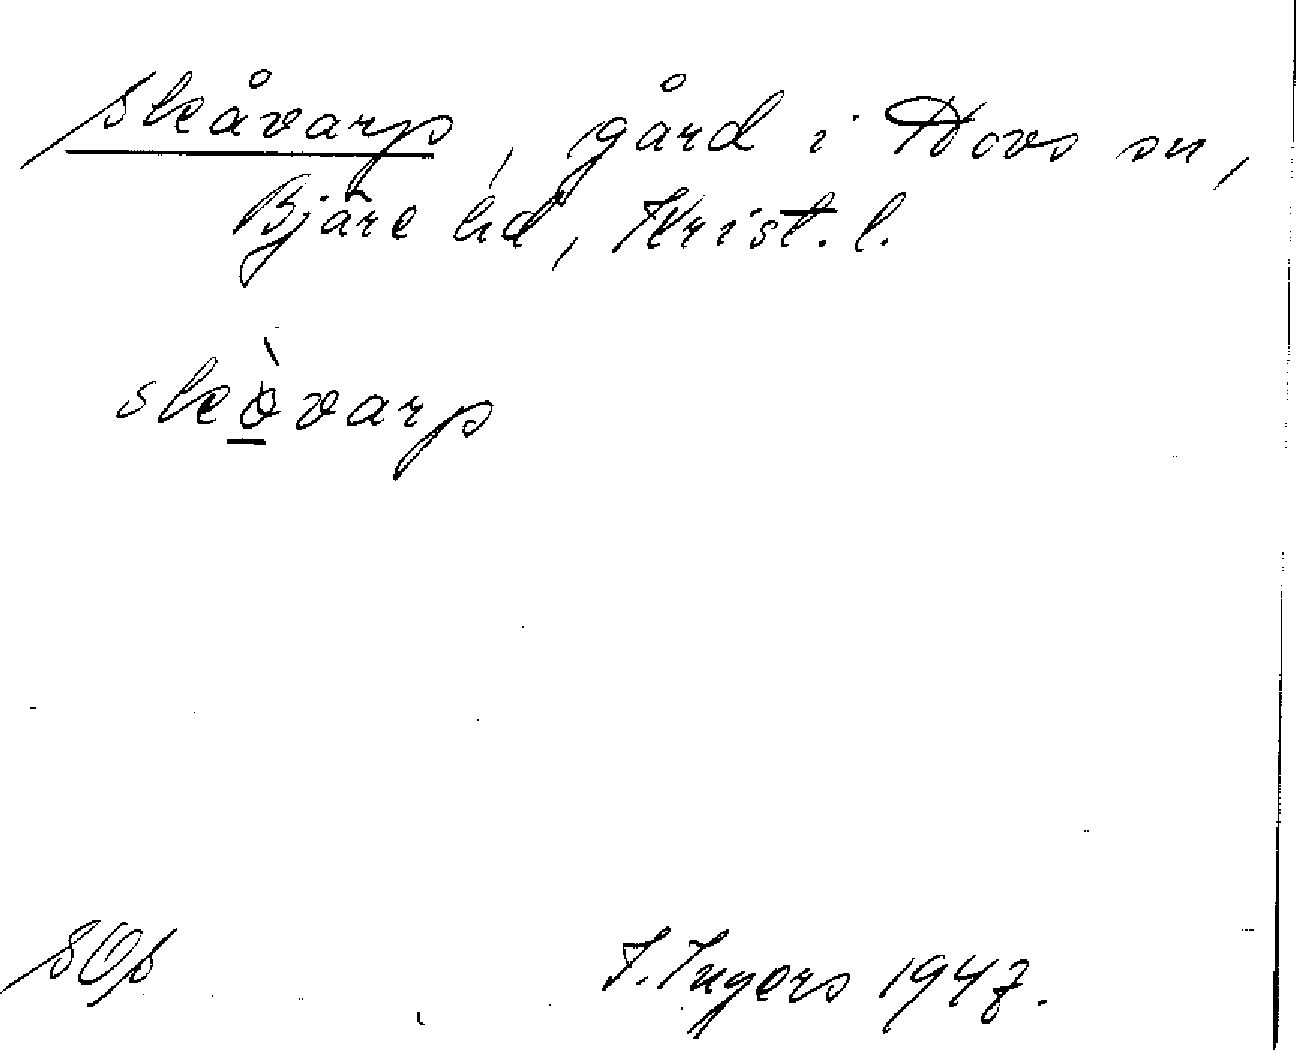 Skåvarp, gård i Hovs sn,
Bjäre hd, Krist. l.
skòvarp
SOS
I. Ingers 1947.